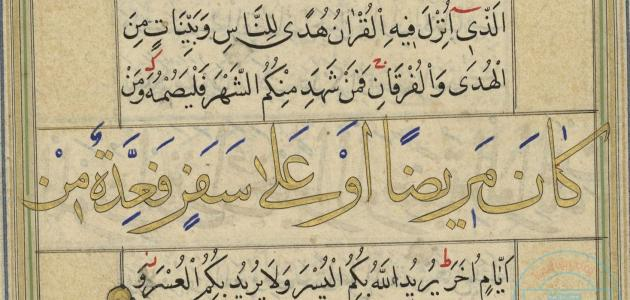 الَّذِى اُنْزِلَ فِيهِ الْقُرْاٰنُ هُدًى لِلنَّاسِ وَبَيِّنَاتٍ مِنَ
الْهُدَى وَالْفُرْقَانِ فَمَنْ شَهِدَ مِنْكُمُ الشَّهْرَ فَلْيَصُمْهُ وَمَنْ
كَانَ مَرِيضًا اَوْ عَلٰى سَفَرٍ فَعِدَّةٌ مِنْ
اَيَّامٍ اُخَرَ يُرِيدُ اللّٰهُ بِكُمُ الْيُسْرَ وَلَا يُرِيدُ بِكُمُ الْعُسْرَ وَ